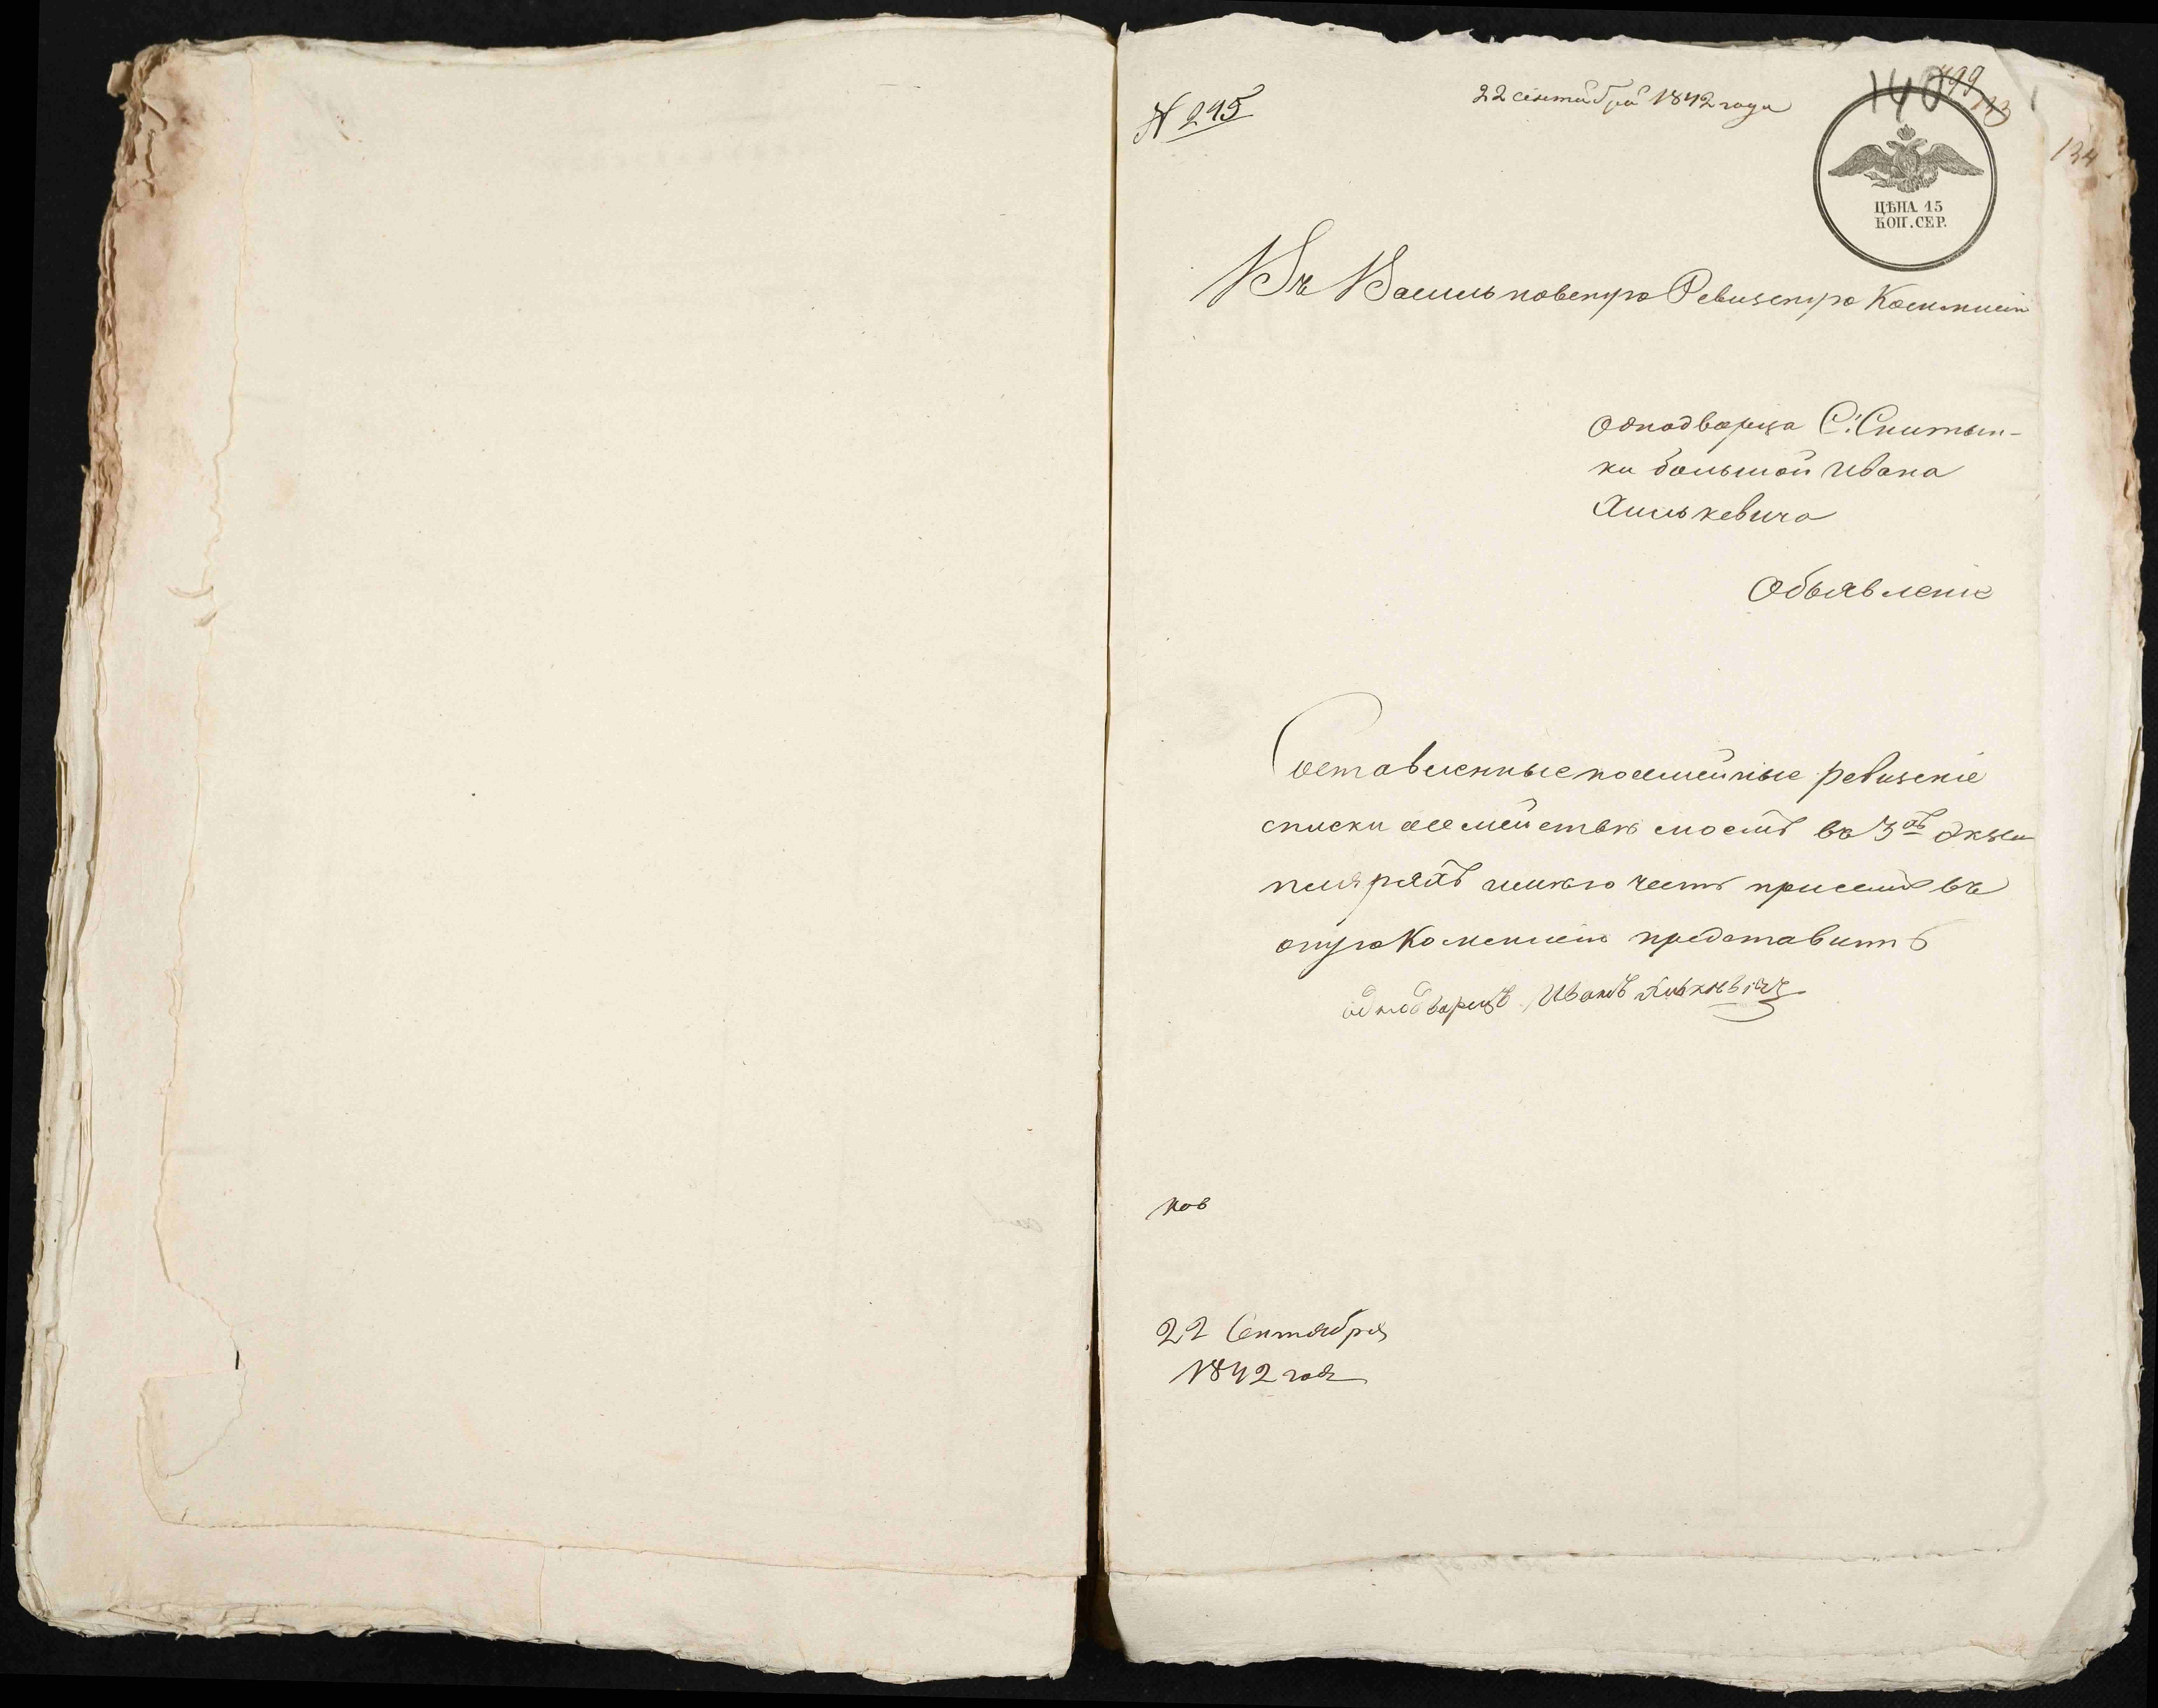 № 245
22 сентября 1842 года
140
199
134
ЦѢНА 15
КОП. СЕР.
Въ Васильковскую Ревизскую Коммисію
Однодворца С. Снитын-
ки большой Ивана
Яилькевича
Объявленіе
Составленные посемейные ревизскіе
списки семейству моему въ 3хъ Экзем
плярахъ имѣю честь присемъ въ
оную Коммисію представить
однодворецъ Иванъ
ков
22 Сентября
1842 года